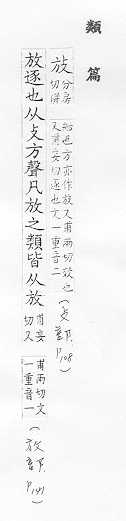 類篇
放分房切併船也方亦作放又甫兩切效也又甫妄切逐也文一重音二(攴部 P.108)
放逐也从攴方聲凡放之類皆从放甫妄切又甫兩切文一重音一(放部 P.141)